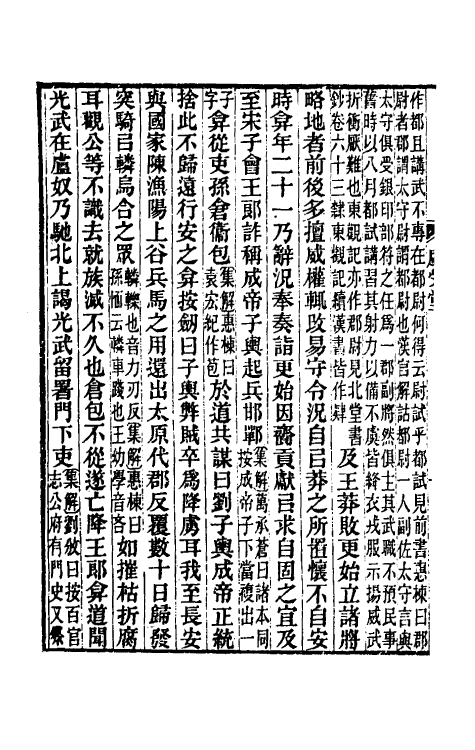 作都且講武不專在都尉何得云尉試乎都試見前書惠棟曰郡
尉者郡謂太守尉謂都尉也漢官解詁都尉一人副佐太守言與
太守俱受銀印部符之任爲一郡副將然俱主其武職不預民事
舊時以八月都試講習其射力以備不虞皆絳衣戎服示揚威武
折衝厭難也東觀記亦作郡尉見北堂書
鈔卷六十三隸東觀記續漢書皆作肄
及王莽敗更始立諸將
略地者前後多擅威權輒改易守令況自㠯莽之所置懷不自安
時弇年二十一乃辭況奉奏詣更始因齎貢獻㠯求自固之宜及
至宋子會王郎詐稱成帝子輿起兵邯鄲
集解萬承蒼曰諸本同
按成帝子下當複出一
子
字
弇從吏孫倉衞包
集解惠棟曰
袁宏紀作苞
於道共謀曰劉子輿成帝正統
捨此不歸遠行安之弇按劒曰子輿弊賊卒爲降虜耳我至長安
與國家陳漁陽上谷兵馬之用還出太原代郡反覆數十日歸發
突騎㠯轔烏合之眾
轔轢也音力刃反集解惠棟曰
孫愐云轔車踐也王幼學音吝
㠯如摧枯折腐
耳觀公等不識去就族滅不久也倉包不從遂亡降王郎弇道聞
光武在盧奴乃馳北上謁光武留署門下吏
集解劉攽曰按百官
志公府有門史又